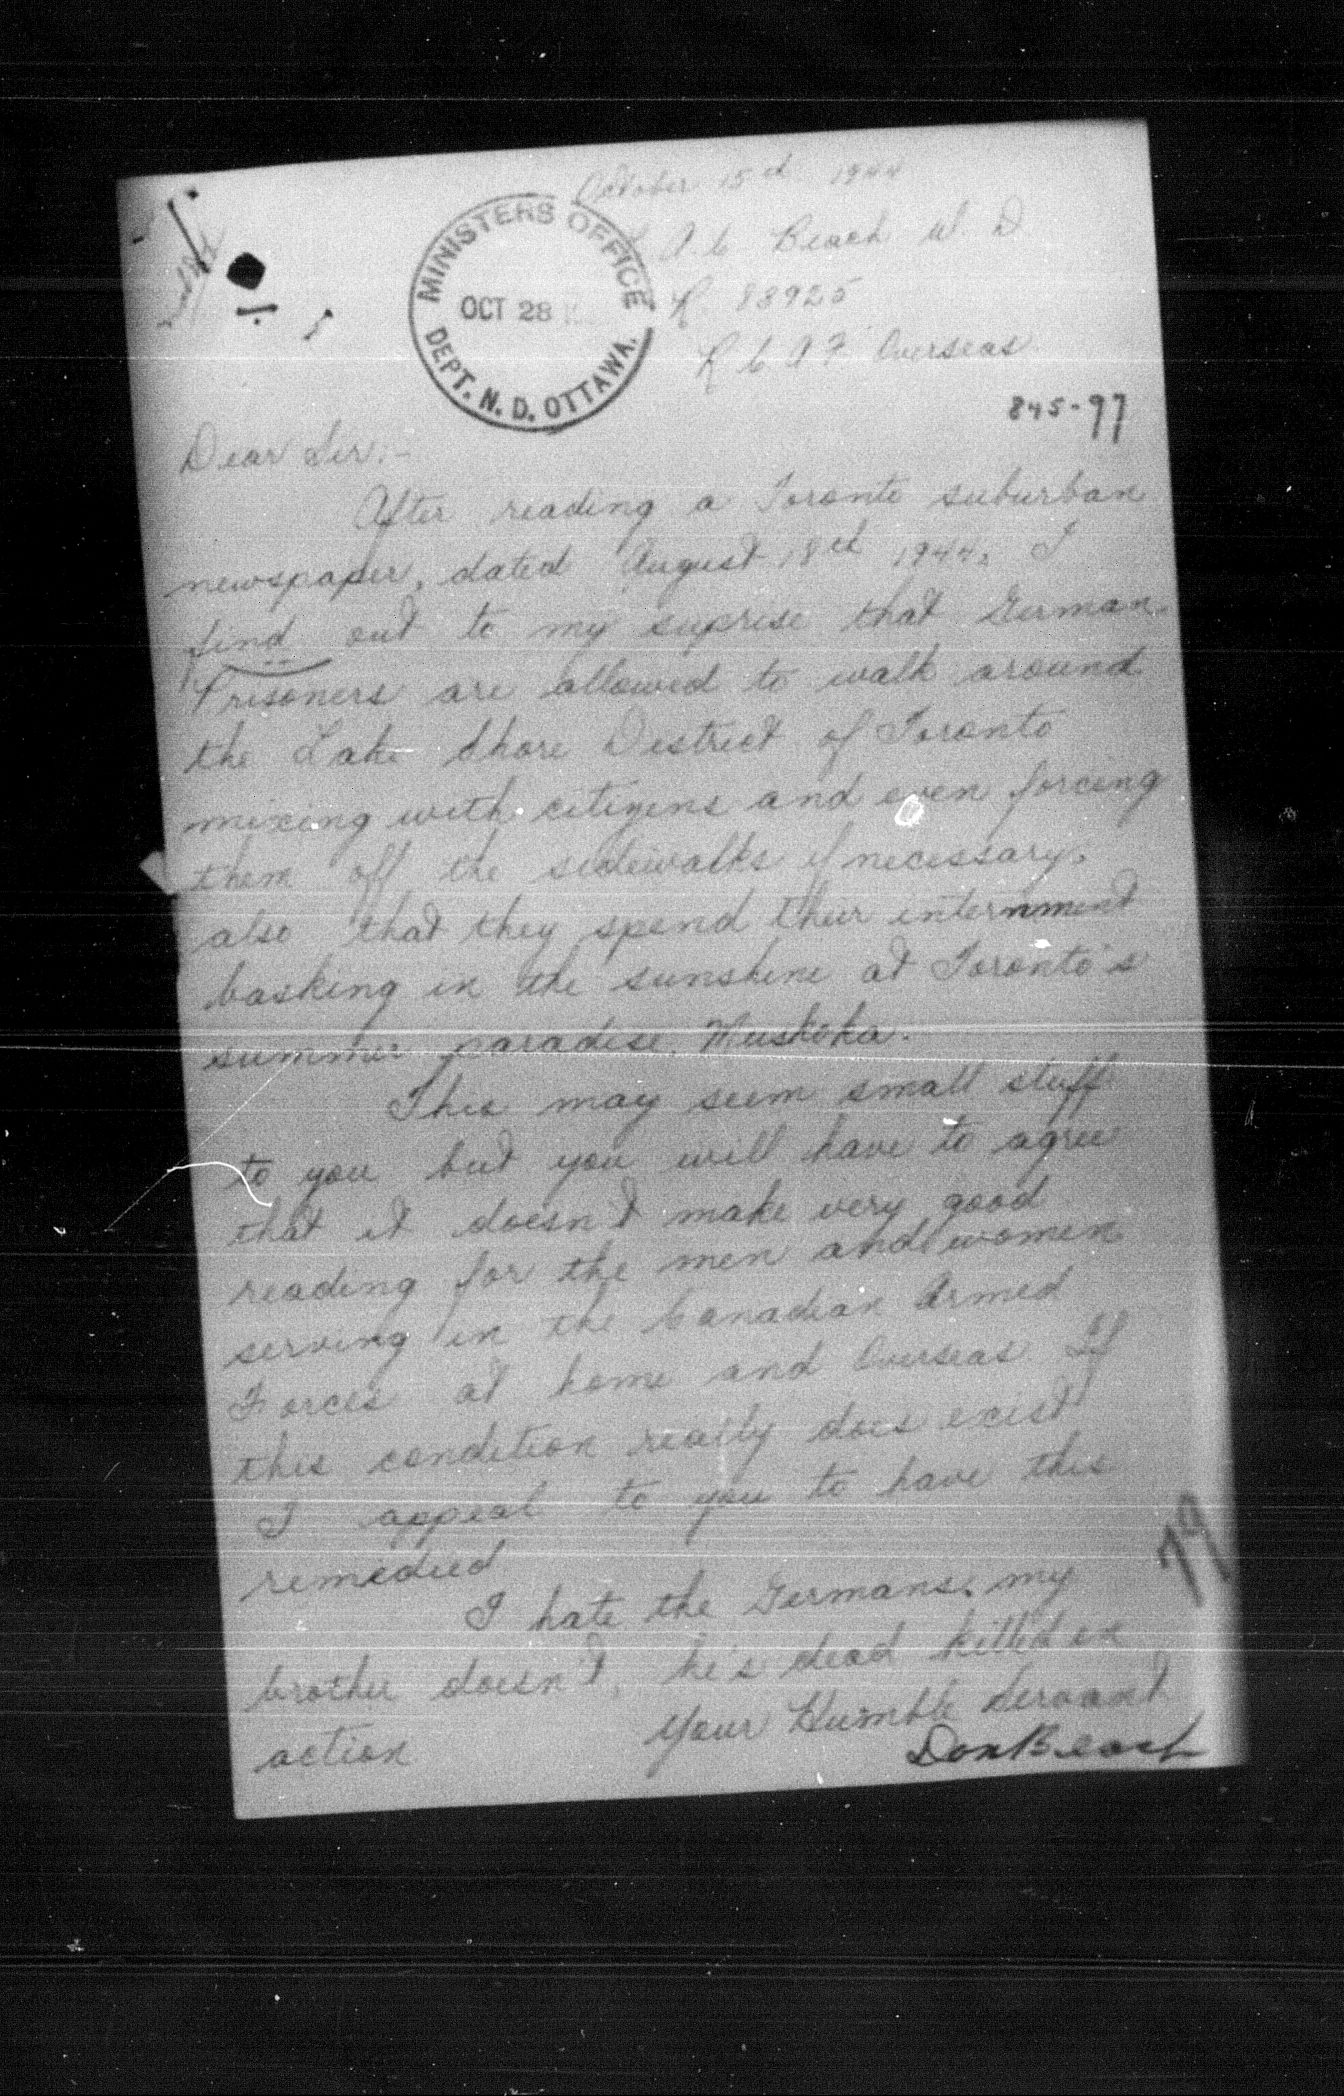 October 15th 1944
MINISTERS OFFICE
OCT 28
DEPT. N. D. OTTAWA.
L A.C Beach W. D
R 88925
R C A F Overseas
845-97
Dear Sir:-
After reading a Toronto suburban
newspaper, dated August 18th 1944, I
find out to my suprise that German
Prisoners are allowed to walk around
the Lake Shore District of Toronto
mixing with citizens and even forcing
them off the sidewalks if necessary,
also that they spend their internment
basking in the sunshine at Toronto's
summer paradise, Muskoka.
This may seem small stuff
to you but you will have to agree
that it doesn't make very good
reading for the men and women
serving in the Canadian Armed
Forces at home and Overseas If
this condition really does exist
I appeal to you to have this
remedied
I hate the Germans, my
brother doesn't, he's dead killed in
action
Your Humble Servant
Don Beach
79